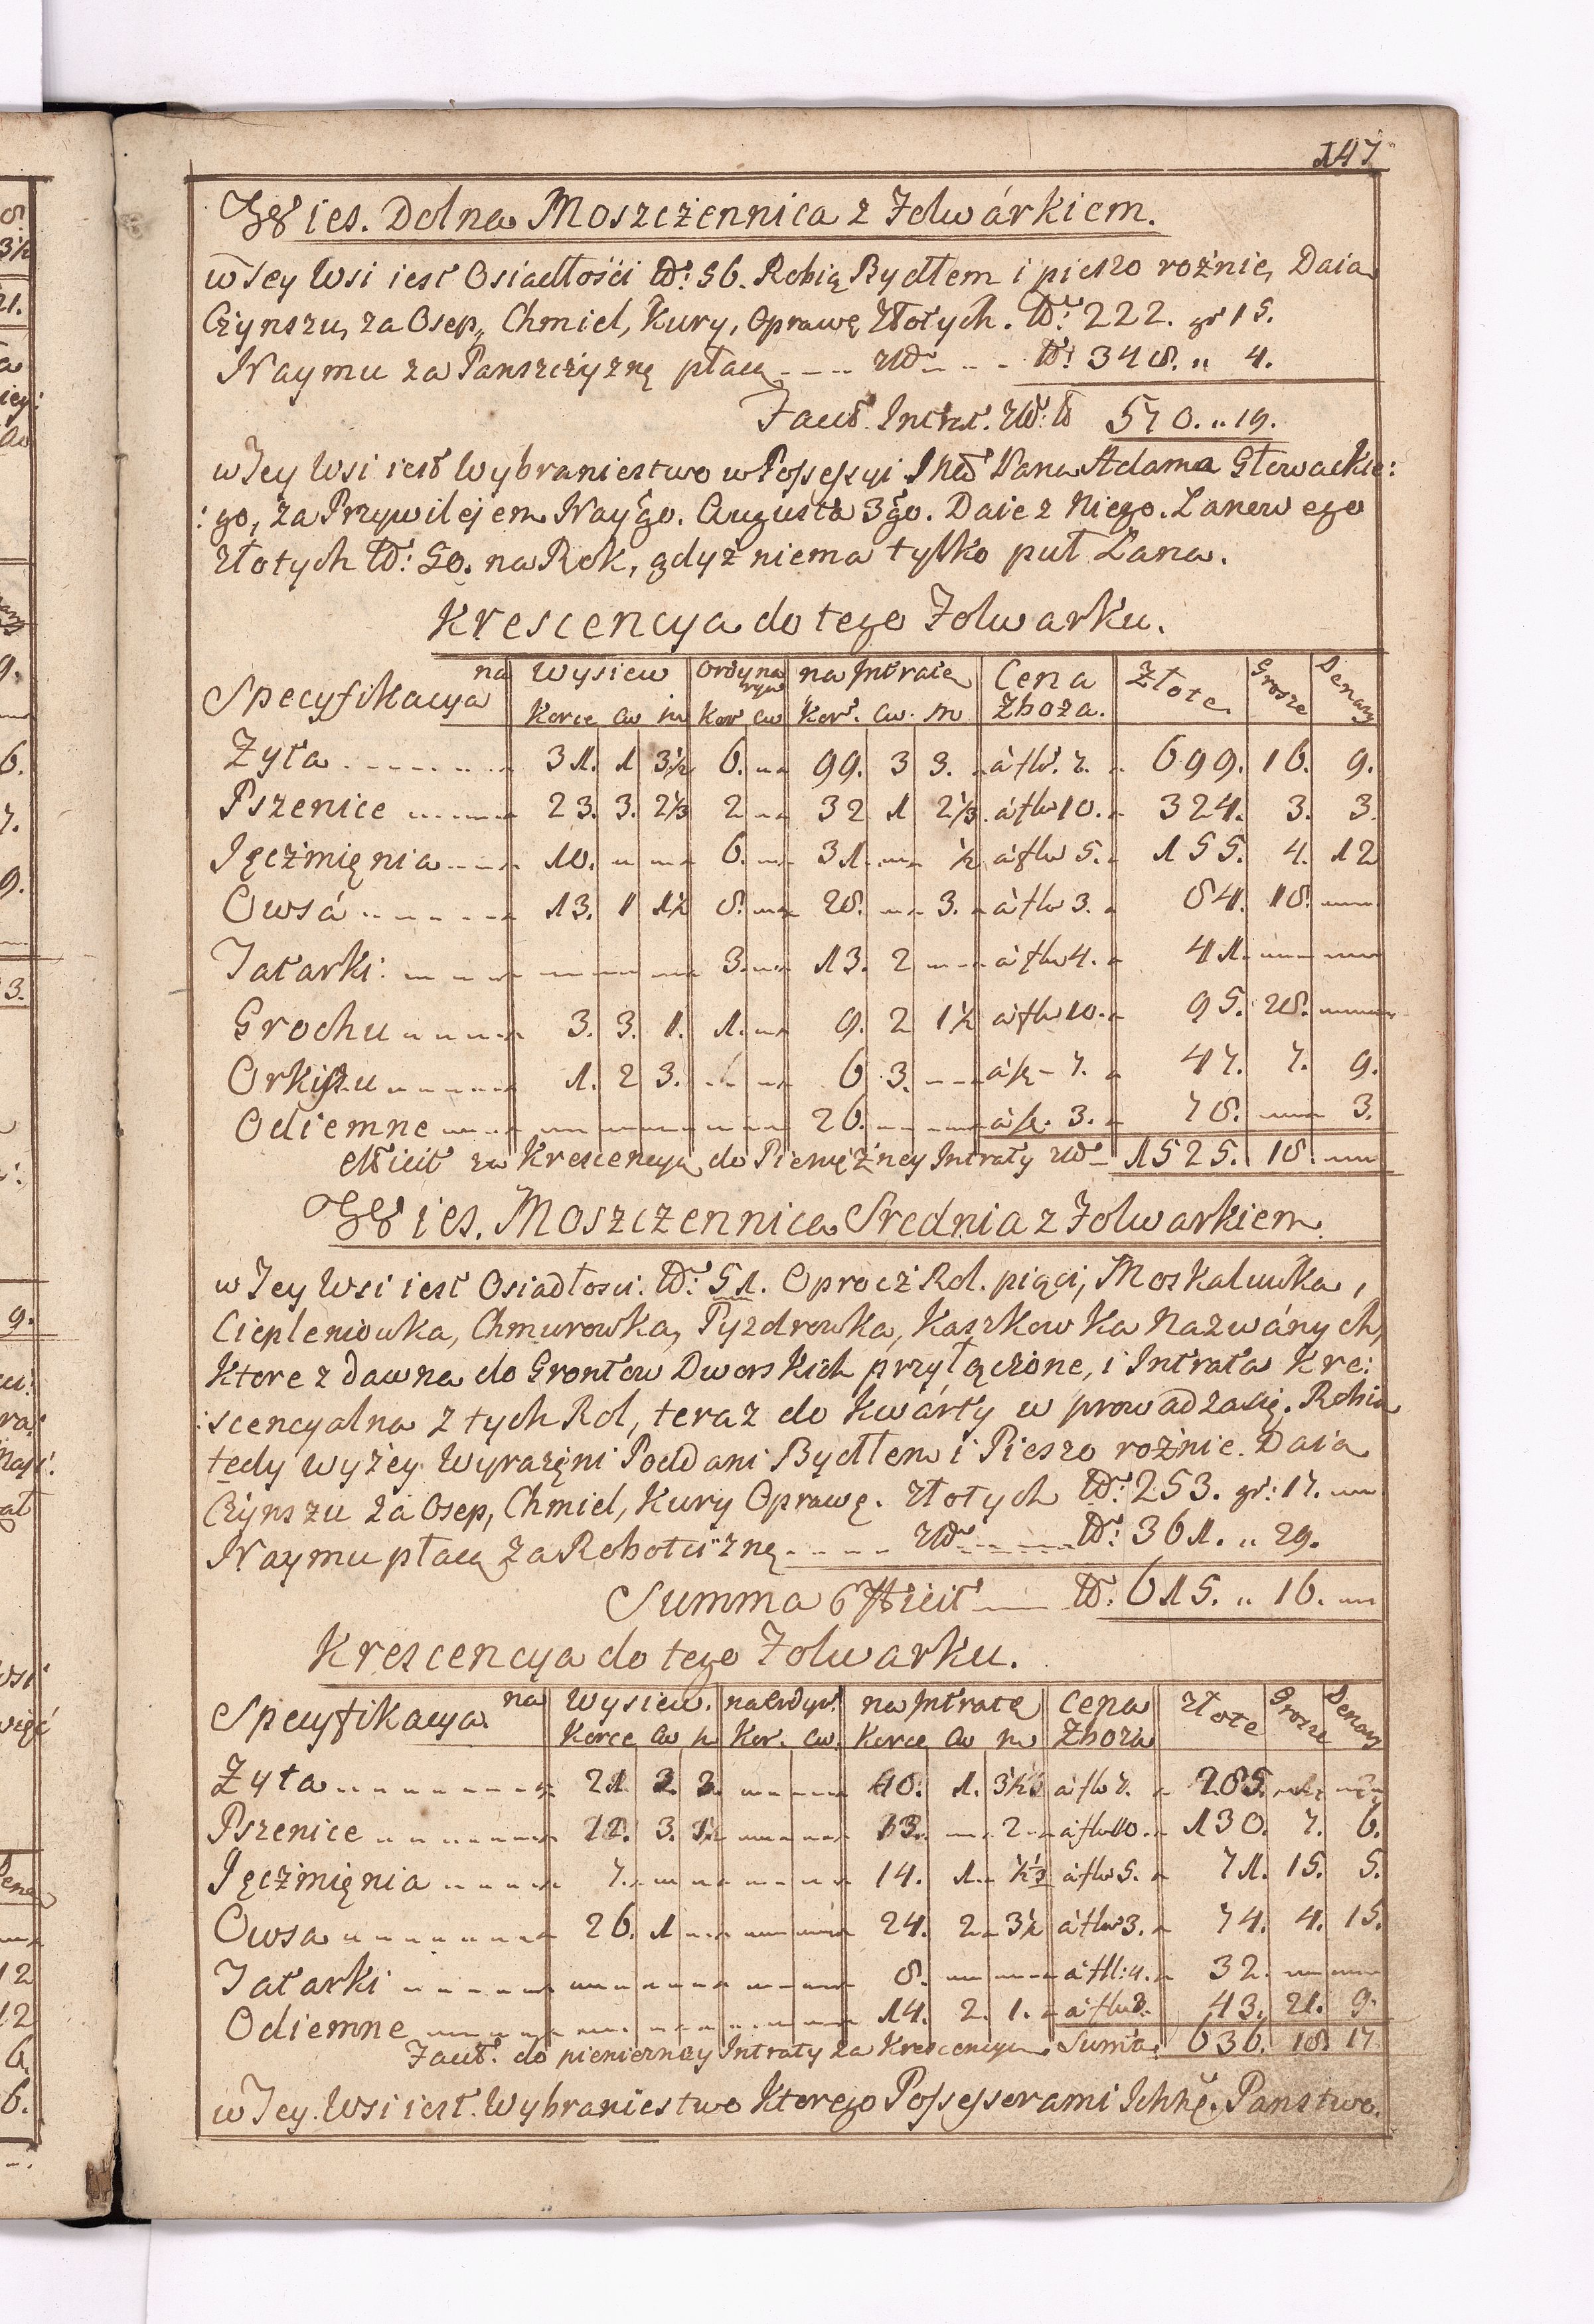 147
Wies. Dolna Moszczennica z Folwárkiem.
w Tey Wsi iest Osiadłośći N: 56. Robią Bydłem i pieszo rożnie, Daią
Czynszu, za Osep, Chmiel, Kury, Oprawę Złotych. N: 222. gr 15.
Naymu za Panszczyznę płacą ---- N: 348. " 4.
Facit. Intrt. 570. " 19.
w Tey Wsi iest Wybraniestwo w Possessyi Pana Adama Głowackie:
:go, za Przywilejem Nayśgo. Augusta 3go. Daie z Niego. Lanowego
złotych N: 50. na Rok, gdyż niema tylko puł Lana.
Krescencya do tego Folwarku.
Specyfikacya na Wysiew Ordynaryą na Intratę Cena Zboża. Złote. Grosze Denary
Korce Cw m Kor Cw Kor. Cw. m
Zyta 31. 1 3½ 6. 99. 3 3. á fl. 7. 699. 16. 9.
Pszenice 23. 3. 2⅓ 2 32 1 2⅓ á fl 10. 324. 3. 3.
Jęczmięnia 10. 6. 31. ½ á fl 5. 155. 4. 12
Owsá 13. 1 1½ 8. 28. 3. á fl 3. 84. 18.
Tatarki: 3. 13. 2 á fl 4. 41.
Grochu 3. 3. 1. 1. 9. 2 1½ á fl 10. 95. 28.
Orkiszu 1. 2 3. 6 3. á fl 7. 47. 7. 9.
Odiemne 26. á fl. 3. 78. 3.
za Krescencyą do Pieniężney Intraty 1525. 18.
Wies. Moszczennica Srednia z Folwarkiem.
w Tey Wsi iest Osiadłosci: N: 51. Oprocż Rol. pięci, Moskaluwka,
Ciepleniowka, Chmurowka, Pyzdrowka, Kaszkowka Nazwánych,
Ktore z dawna do Grontow Dworskich przyłączone, i Intrata Kre:
:scencyalna z tych Rol, teraz do Kwárty wprowadza się. Robią
tedy wyżey Wyrażęni Poddani Bydłem i Pieszo rożnie. Daią
Czynszu za Osep, Chmiel, Kury Oprawę. Złotych N: 253. gr: 17.
Naymu płacą za Robotciznę N: 361. " 29.
Summa N: 615. " 16.
Krescencya do tego Folwarku.
Specyfikacya. na Wysiew. na Ordyn: na Intratę Cena Zboża Złote Grosze Denary
Korce Cw m Kor. Cw. Korce Cw m
Zyta 21. 3. 3. 40. 1. á fl 7. 285.
Pszenice 12. 3. 1½ 13. 2 á fl 10. 130. 7. 6.
Jęczmięnia 7. 14. 1. á fl 5. 71. 15. 5.
Owsa 26. 1 24. 2 3½ á fl 3. 74. 4. 15.
Tatarki 8. á fl: 4. 32.
Odiemne 14. 2. 1. á fl 3. 43. 21. 9.
Facit. do pieniężney Intraty za Krescencyą. Suma. 636. 18 17
w Tey. Wsi iest. Wybraniestwo Ktorego Possessorami Ichhę. Panstwo.